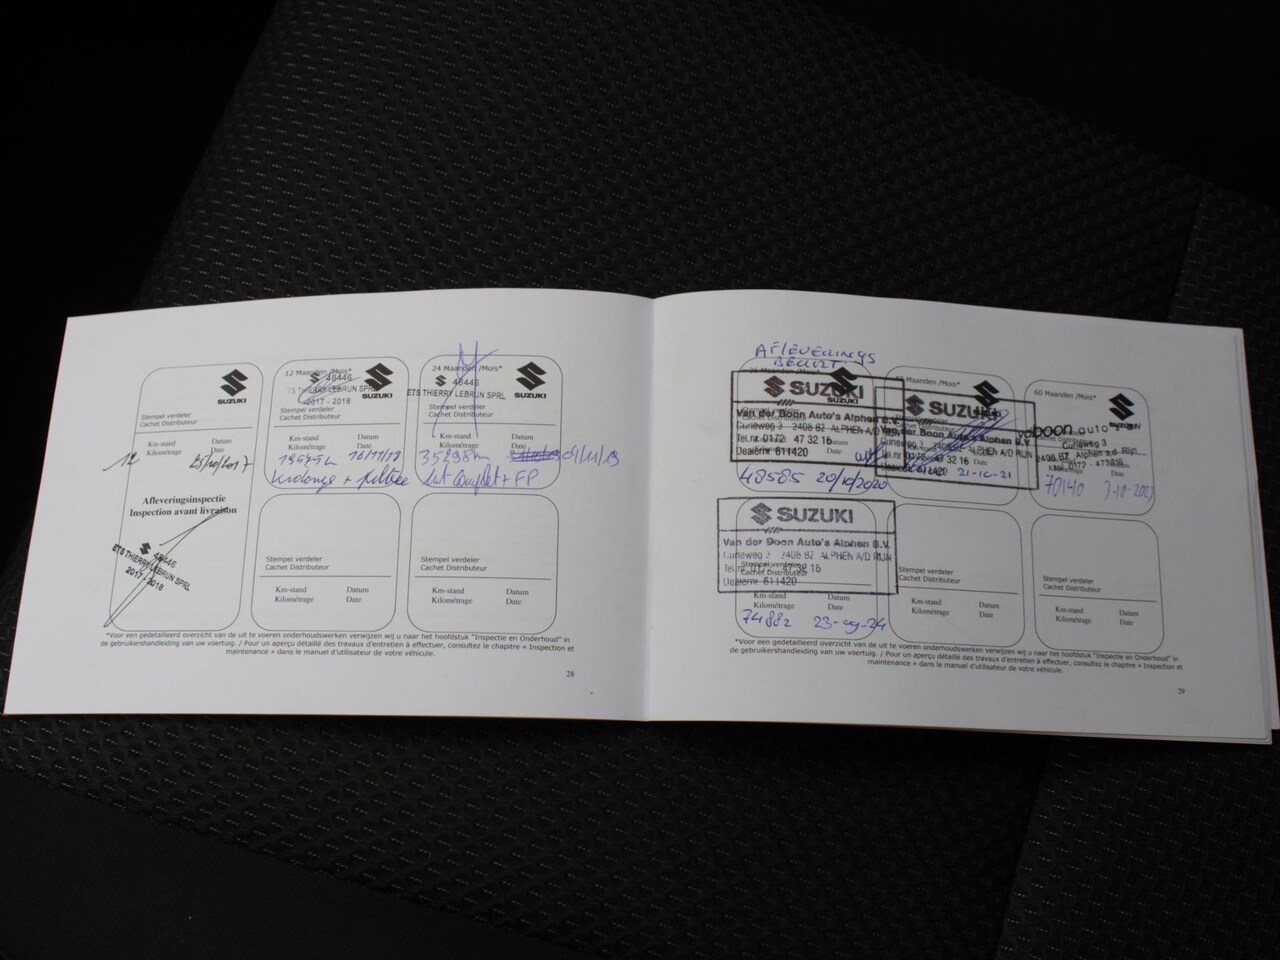 SUZUKI
Stempel verdeler
Cachet Distributeur
Km-stand Datum
Kilométrage Date
12 25/10/2017
Afleveringsinspectie
Inspection avant livraison
48446
ETS THIERRY LEBRUN SPRL
2017 - 2018
12 Maanden /Mois*
48446
LEBRUN SPRL
SUZUKI
2017 - 2018
Stempel verdeler
Cachet Distributeur
Km-stand Datum
Kilométrage Date
16/11/18
24 Maanden /Mois*
48446
ETS THIERRY LEBRUN SPRL
SUZUKI
Km-stand Datum
Kilométrage Date
35298km 04/11/19
Stempel verdeler
Cachet Distributeur
Km-stand Datum
Kilométrage Date
Stempel verdeler
Cachet Distributeur
Km-stand Datum
Kilométrage Date
*Voor een gedetailleerd overzicht van de uit te voeren onderhoudswerken verwijzen wij u naar het hoofdstuk "Inspectie en Onderhoud" in
de gebruikershandleiding van uw voertuig. / Pour un aperçu détaillé des travaux d'entretien à effectuer, consultez le chapitre « Inspection et
maintenance » dans le manuel d'utilisateur de votre véhicule.
28
AFLEVERINGS
BEURT.
SUZUKI
Van der Boon Auto's Alphen B.V.
Curieweg 3 2408 BZ ALPHEN A/D RIJN
Tel.nr. 0172 47 32 16
Dealernr 611420
48585 20/10/2020
Maanden /Mois*
SUZUKI
Van der Boon Auto's Alphen B.V.
Curieweg 3 2408 BZ ALPHEN A/D RIJN
47 32 16
611420 21-10-21
60 Maanden /Mois*
SUZUKI
vdboon auto's
Curieweg 3
2408 BZ Alphen a.d. Rijn
0172 - 473216
70140
SUZUKI
Van der Boon Auto's Alphen B.V.
Curieweg 3 2408 BZ ALPHEN A/D RIJN
Tel.nr. 0172 47 32 16
Dealernr 611420
Km-stand Datum
Kilométrage Date
74882 23-09-24
Stempel verdeler
Cachet Distributeur
Km-stand Datum
Kilométrage Date
Stempel verdeler
Cachet Distributeur
Km-stand Datum
Kilométrage Date
*Voor een gedetailleerd overzicht van de uit te voeren onderhoudswerken verwijzen wij u naar het hoofdstuk "Inspectie en Onderhoud" in
de gebruikershandleiding van uw voertuig. / Pour un aperçu détaillé des travaux d'entretien à effectuer, consultez le chapitre « Inspection et
maintenance » dans le manuel d'utilisateur de votre véhicule.
29